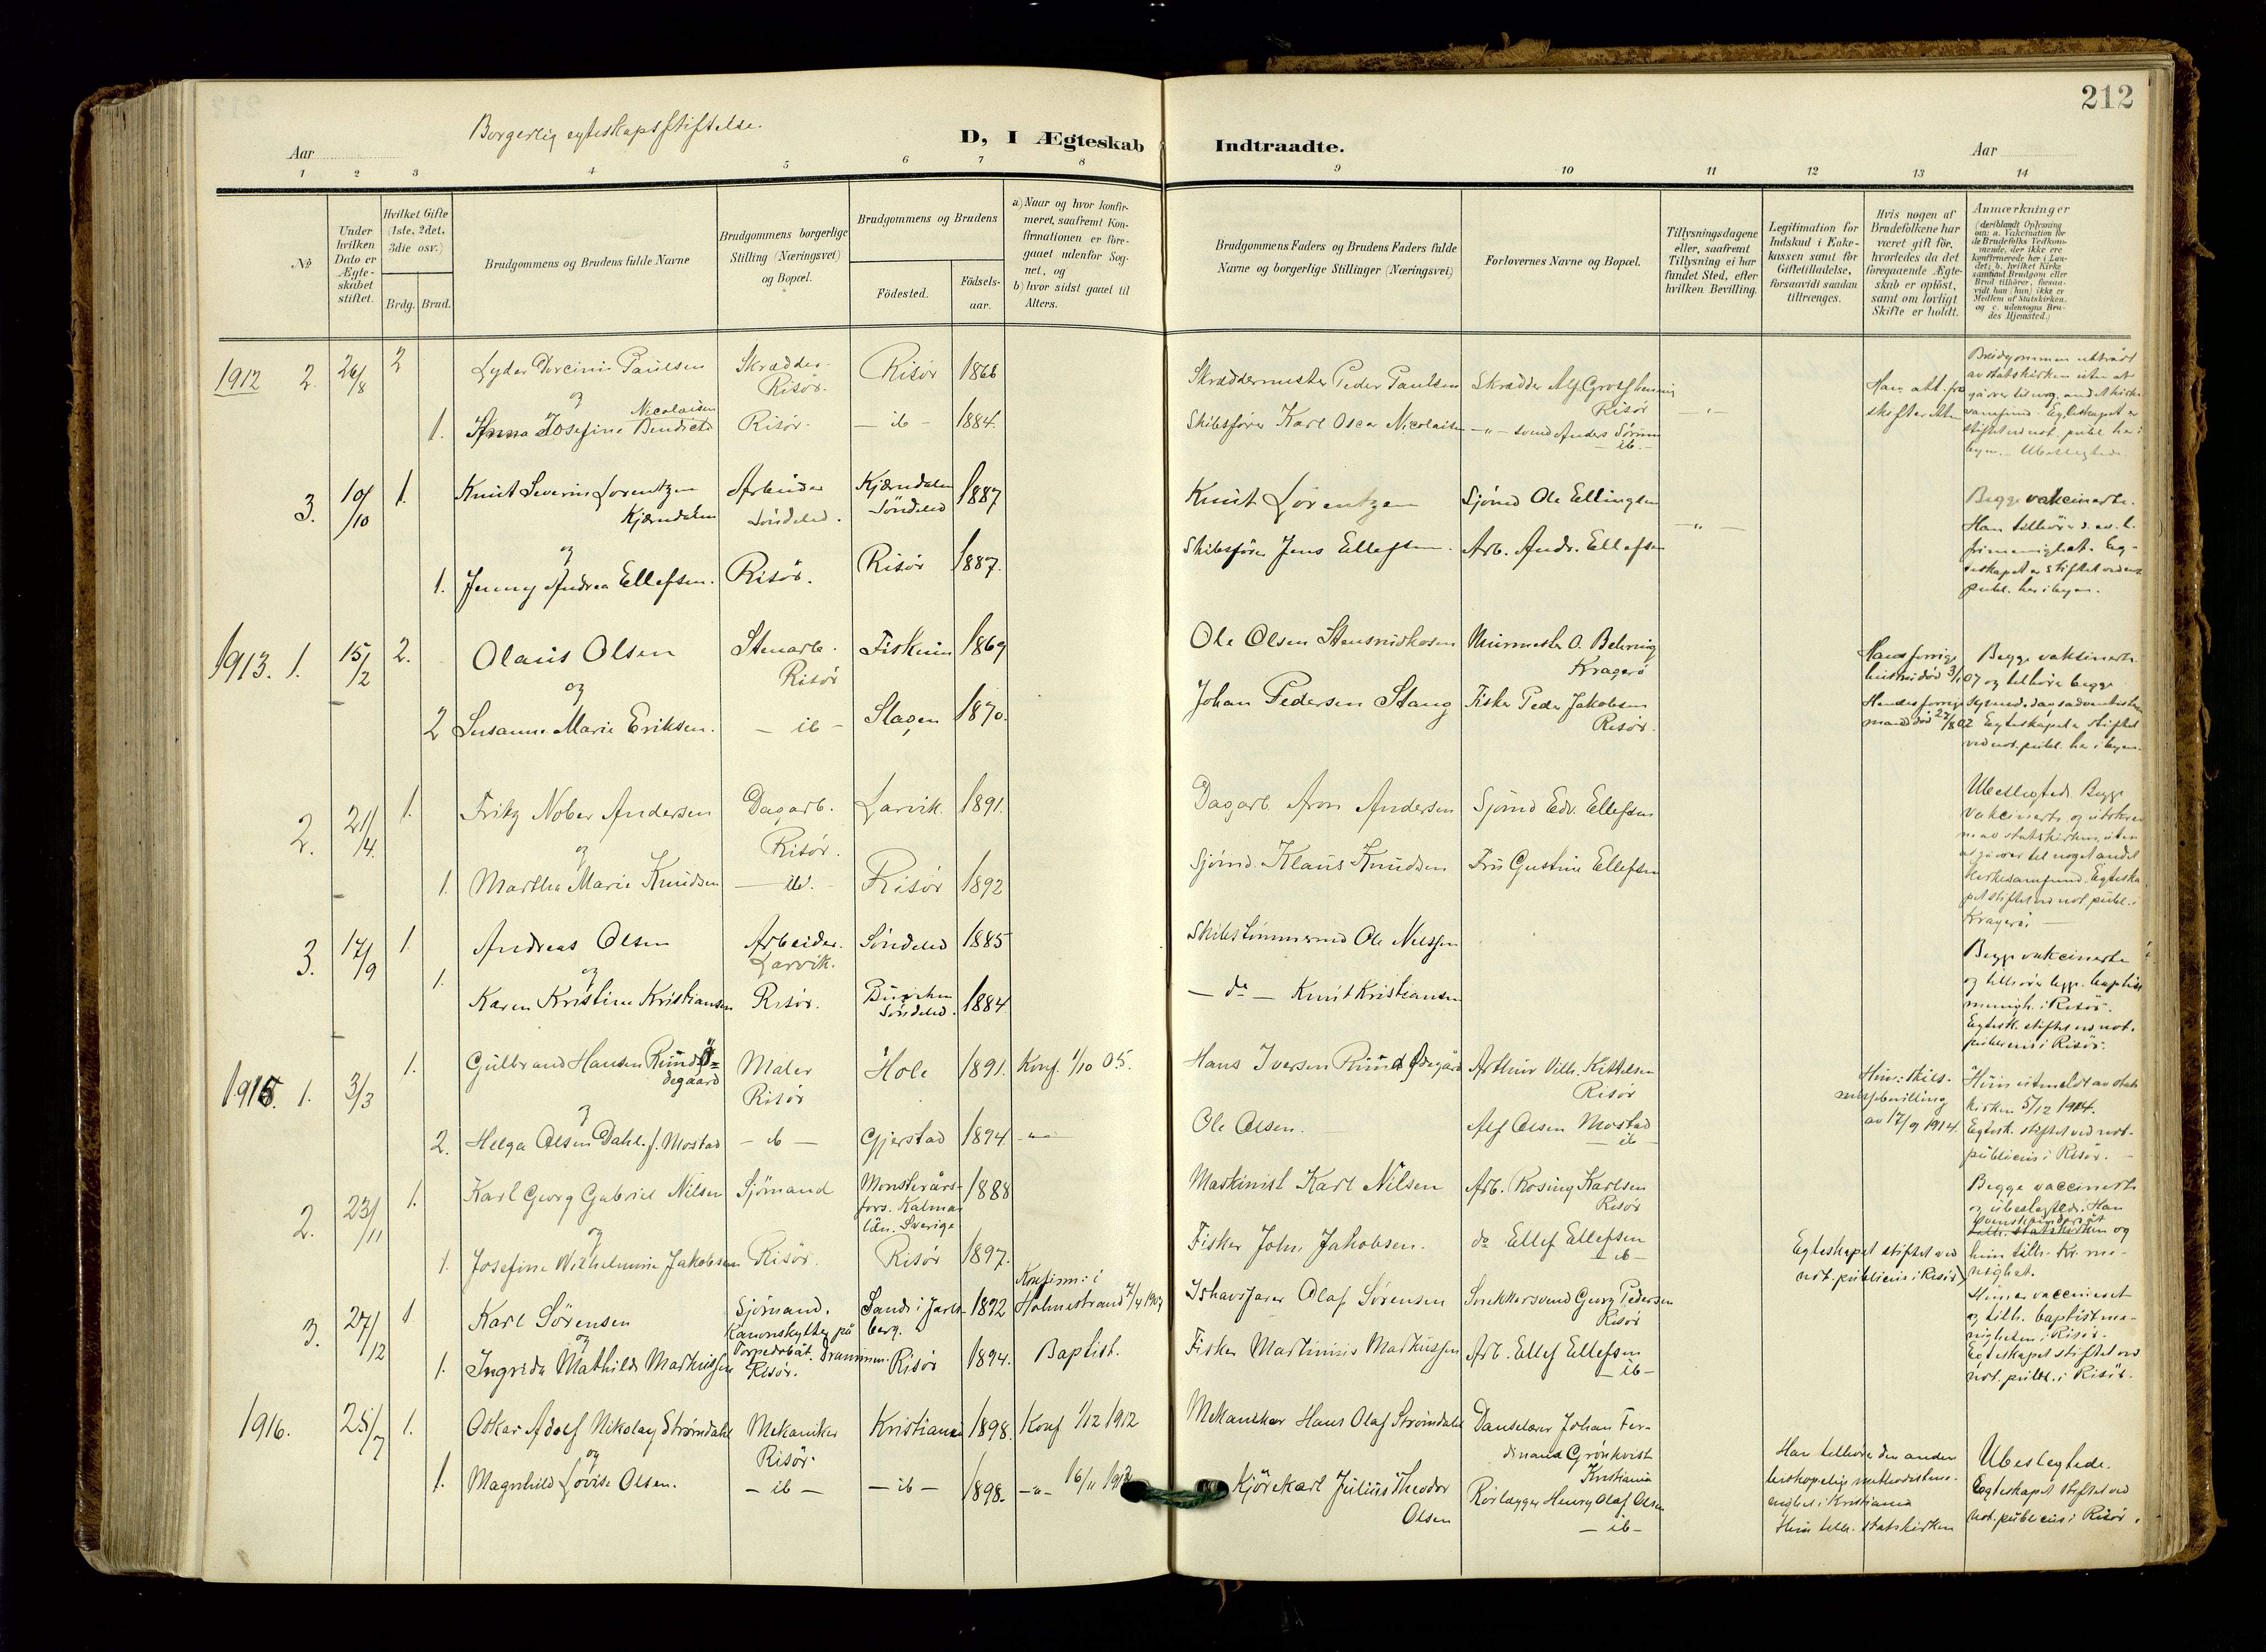 212
Borgerlig egteskapsstiftelse.
D, I Ægteskab Indtraadte.
Aar
Aar
1 2 3 4 5 6 7 8 9 10 11 12 13 14
No
Under hvilken Dato er Ægteskabet stiftet.
Hvilket Gifte (1ste, 2det, 3die osv.)
Brdg. Brud.
Brudgommens og Brudens fulde Navne
Brudgommens borgerlige Stilling (Næringsvei) og Bopæl.
Brudgommens og Brudens
Fødested.
Fødselsaar.
a) Naar og hvor konfirmeret, saafremt Konfirmationen er foregaaet udenfor Sognet, og
b) hvor sidst gaaet til Alters.
Brudgommens Faders og Brudens Faders fulde Navne og borgerlige Stillinger (Næringsvei)
Forlovernes Navne og Bopæl.
Tillysningsdagene eller, saafremt Tillysning ei har fundet Sted, efter hvilken Bevilling.
Legitimation for Indskud i Enkekassen samt for Giftetilladelse, forsaavidt saadan tiltrænges.
Hvis nogen af Brudefolkene har været gift før, hvorledes da det foregaaende Ægteskab er opløst, samt om lovligt Skifte er holdt.
Anmærkninger
(deriblandt Oplysning om: a. Vakcination for de Brudefolks Vedkommende, der ikke ere konfirmerede her i Landet; b. hvilket Kirkesamfund Brudgom eller Brud tilhører, forsaavidt han (hun) ikke er Medlem af Statskirken, og c. udensogns Brudes Hjemsted.)
1912 2. 26/8 2 Lyder Paulsen Skrædder. Risör. Risör 1866 Skræddermester Peder Paulsen Skrædder Alf. Risör
og
1. Anna Josefine Bendicte Nicolaisen Risör. - ib - 1884. Skibsfører Karl Oscar Nicolaisen -"- svend Anders - ib. -
Brudgommen uttraadt
av statskirken uten at
gå over til nog. andet kirke
samfund. Egteskapet er
stiftet ved not. publ. her i
byen. - Ubeslegtede.
3. 10/10 1. Knut Severin Lorentzen Kjærndalen Arbeider Söndeled. Kjærndalen Söndeled 1887 Knut Lorentzen Sjömd Ole Ellingsen
og
1. Jenny Andrea Ellefsen. Risör. Risör 1887. Skibsfören Jens Ellefsen. Arb. Andr. Ellefsen
Begge vakcinerte.
Han tilhörer d. ev. l.
frimenighet. Eg-
teskapet er stiftet ved not.
publ. her i byen.
1913. 1. 15/2 2. Olaus Olsen Stenarb. Risör Fiskum 1869 Ole Olsen Murmester O. Behring Kragerö
og
2 Susanne Marie Eriksen. - ib - Slagen 1870. Johan Pedersen Stang Fisker Peder Jakobsen Risör.
Hans forrige
hustru död 3/1 07
Hendes forrige
mand död 27/8 02
Begge vaksinerte
og tilhörer begge
syvende dags adventisterne
Egteskapet er stiftet
ved not. publ. her i byen.
2. 21/4. 1. Fritz Nober Andersen Dagarb. Risör. Larvik. 1891. Dagarb. Aron Andersen Sjömd Edv. Ellefsen
og
1. Martha Marie Knudsen - ib. - Risör 1892 Sjömd. Klaus Knudsen Fru Gustine Ellefsen
Ubeslegtede. Begge
vakcinerte og utskrev-
ne av statskirken, uten
at gå over til noget andet
kirkesamfund. Egteska-
pet stiftet ved not. publ. i
Kragerö
3. 17/9 1. Andreas Olsen Arbeider. Larvik. Söndeled 1885 Skibstömmermd Ole Nilssen
og
1. Karen Kristine Kristiansen Risör. Söndeled. 1884 - do - Knut Kristiansen
Begge vakcinerte
og tilhörer begge baptist
menigh. i Risör.
Egtesk. stiftet ved not.
publicus i Risör.
1915. 1. 3/3 1. Gulbrand Hansen Rundö-
degaard Maler Risör Hole 1891. Konf. 1/10 05. Hans Iversen Rundödegård Arthur Vilh. Kittelsen Risör
og
2. Helga Olsen Dahl f. Mostad - ib - Gjerstad 1894. -"- Ole Olsen. Alf Olsen Mostad - ib -
Hun: skils-
missebevilling
av 17/9 1914.
Hun utmeldt av stats
kirken 5/12 1914.
Egtesk. stiftet ved not-
publicus i Risör.
2. 23/11 1. Karl Georg Gabriel Nilsen Sjömand Monsterårs-
fors. Kalmar
län. Sverige 1888 Maskinist Karl Nilsen Arb. Rosing Karlsen Risör
og
1. Josefine Wilhelmine Jakobsen Risör. Risör 1897. Fisker John Jakobsen. do Ellef Ellefsen - ib -
Egteskapet stiftet ved
not. publicus i Risör
Begge vaccinerte
og ubeslegtede. Han
svensk undersåt
tilh. statskirken og
hun tilh. Kr. me-
nighet.
3. 27/12 1 Karl Sörensen Sjömand. Kanonskytter på Torpedobåt. Drammen. Sande i Jarls-
berg. 1892 Konfirm: i
Holmestrand 7/4 1907 Ishavsfarer Olaf Sörensen Snekkersvend Georg Pedersen Risör
og
1. Ingrida Mathilde Markussen Risör. Risör 1894. Baptist. Fisker Martinius Markussen Arb. Ellef Ellefsen - ib -
Hun er vaccineret
og tilh. baptistme-
nigheten i Risör.
Egteskapet stiftet ved
not. publ. i Risör.
1916. 25/7 1. Oskar Adolf Nikolay Strömdahl Mekaniker Risör. Kristiania 1898. Konf 1/12 1912 Mekaniker Hans Olaf Strömdahl Danselærer Johan Fer-
dinand Grönkvist
Kristiania
og
1. Magnhild Lovise Olsen. - ib - - ib - 1898. -"- 16/11 1913 Kjörekarl Julius Theodor
Olsen Rörlægger Henry Olaf Olsen
- ib -
Han tilhörer den anden
biskopelig methodistme-
nighet i Kristiania
Hun tilh. statskirken
Ubeslegtede.
Egteskapet stiftet ved
not. publicus i Risör.